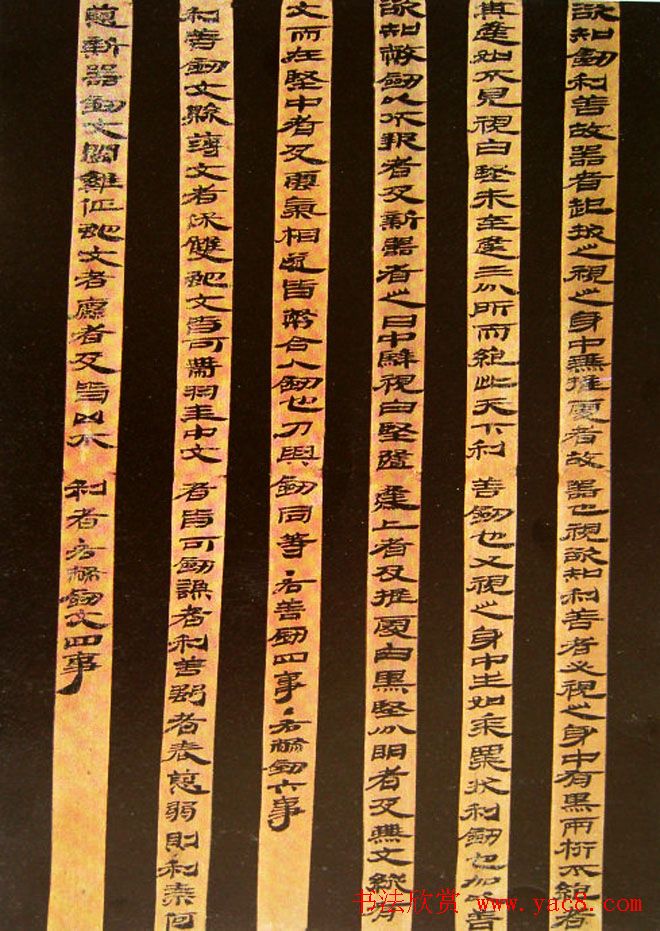 欲知劍利善故器者起拔之視之身中無推處者故器也視欲知利善者必視之身中有黑兩桁不絕者
其逢如不見視白堅未至逢三分所而絕此天下利善劍也又視之身中生如黍粟狀利劍也加以善
欲知幣劍以不報者及新器者之日中騂視白堅隨逢上者及推處白黑堅分明者及無文縱有
文而在堅中者及雲氣相遂皆幣合人劍也刀與劍同等·右善劍四事·右幣劍六事
利善劍文縣薄文者保雙蛇文皆可帶羽圭中文者皆可劍謙者利善強者表恚弱則利奈何
恚新器劍文鬭雞佂蛇文者麤者及皆凶不利者·右幣劍文四事
书法欣赏 www.yac8.com